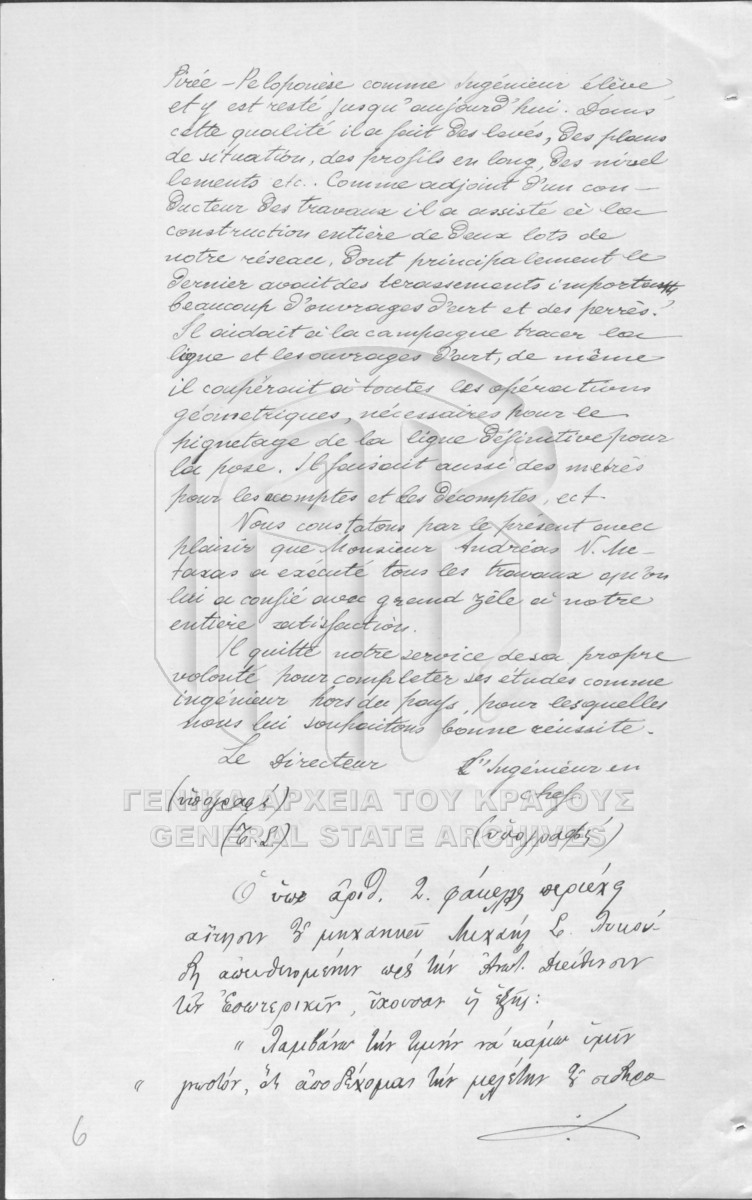 Pirée – Peloponèse comme Ingénieur élève
et y est resté jusqu'aujourd'hui. Dans
cette qualité il a fait des levés, des plans
de situation, des profils en long, des nivel
lements etc. Comme adjoint d'un con–
ducteur des travaux il a assisté à la
construction entière de deux lots de
notre réseau, dont principalement le
dernier avait des terassements importants
beaucoup d'ouvrages d'art et des perrés.
Il aidait à la campagne tracer la
ligne et les ouvrages d'art, de même
il coupérait à toutes les opérations
géometriques, nécessaires pour le
piquetage de la ligne définitive pour
la pose. Il faisait aussi des metrés
pour les acomptes et les décomptes, ect.
Nous constatons par le présent avec
plaisir que Monsieur Andréas N. Me-
taxas a exécuté tous les travaux qu'on
lui a confié avec grand zèle à notre
entière satisfaction.
Il quitte notre service de sa propre
volonté pour completer ses études comme
ingénieur hors du pays, pour lesquelles
nous lui souhaitons bonne réussite.
Le Directeur L'Ingénieur en
chef
(ὑπογραφή)
(Τ. Σ.) (ὑπογραφή)
ΓΕΝΙΚΑ ΑΡΧΕΙΑ ΤΟΥ ΚΡΑΤΟΥΣ
GENERAL STATE ARCHIVES
Ὁ ὑπ' ἀριθ. 2. φάκελλος περιέχει
αἴτησιν τοῦ μηχανικοῦ Μιχαὴλ Σ. Λυκού-
δη ἀπευθυνομένην πρὸς τὴν Ἀνωτ. Διεύθυνσιν
τῶν Ἐσωτερικῶν, ἔχουσαν ὡς ἑξῆς:
" Λαμβάνω τὴν τιμὴν νὰ κάμω ὑμῖν
" γνωστόν, ὅτι ἀποδέχομαι τὴν μελέτην τοῦ σιδηρο
6